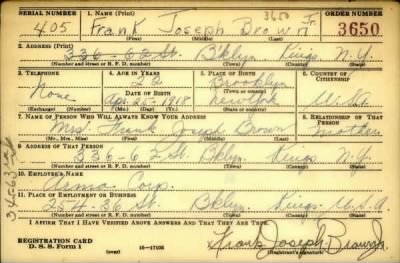 3650
SERIAL NUMBER 1. NAME (Print) ORDER NUMBER
405 Frank Joseph Brown Jr. 3650
(First) (Middle) (Last)
2. ADDRESS (Print)
336-62 St. Bklyn. Kings N.Y.
(Number and street or R. F. D. number) (Town) (County) (State)
3. TELEPHONE 4. AGE IN YEARS 5. PLACE OF BIRTH 6. COUNTRY OF CITIZENSHIP
None 22 Brooklyn
DATE OF BIRTH (Town or county)
1918 New York U.S.A.
(Exchange) (Number) (Mo.) (Day) (Yr.) (State or country)
7. NAME OF PERSON WHO WILL ALWAYS KNOW YOUR ADDRESS 8. RELATIONSHIP OF THAT PERSON
Mrs. Frank Joseph Brown Mother
(Mr., Mrs., Miss) (First) (Middle) (Last)
9. ADDRESS OF THAT PERSON
336-62 St. Bklyn. Kings N.Y.
(Number and street or R. F. D. number) (Town) (County) (State)
10. EMPLOYER'S NAME
Corp.
11. PLACE OF EMPLOYMENT OR BUSINESS
254-36 St. Bklyn. Kings U.S.A
(Number and street or R. F. D. number) (Town) (County) (State)
I AFFIRM THAT I HAVE VERIFIED ABOVE ANSWERS AND THAT THEY ARE TRUE.
REGISTRATION CARD
D. S. S. Form 1 (over) 16—17105 Frank Joseph Brown Jr.
(Registrant's signature)